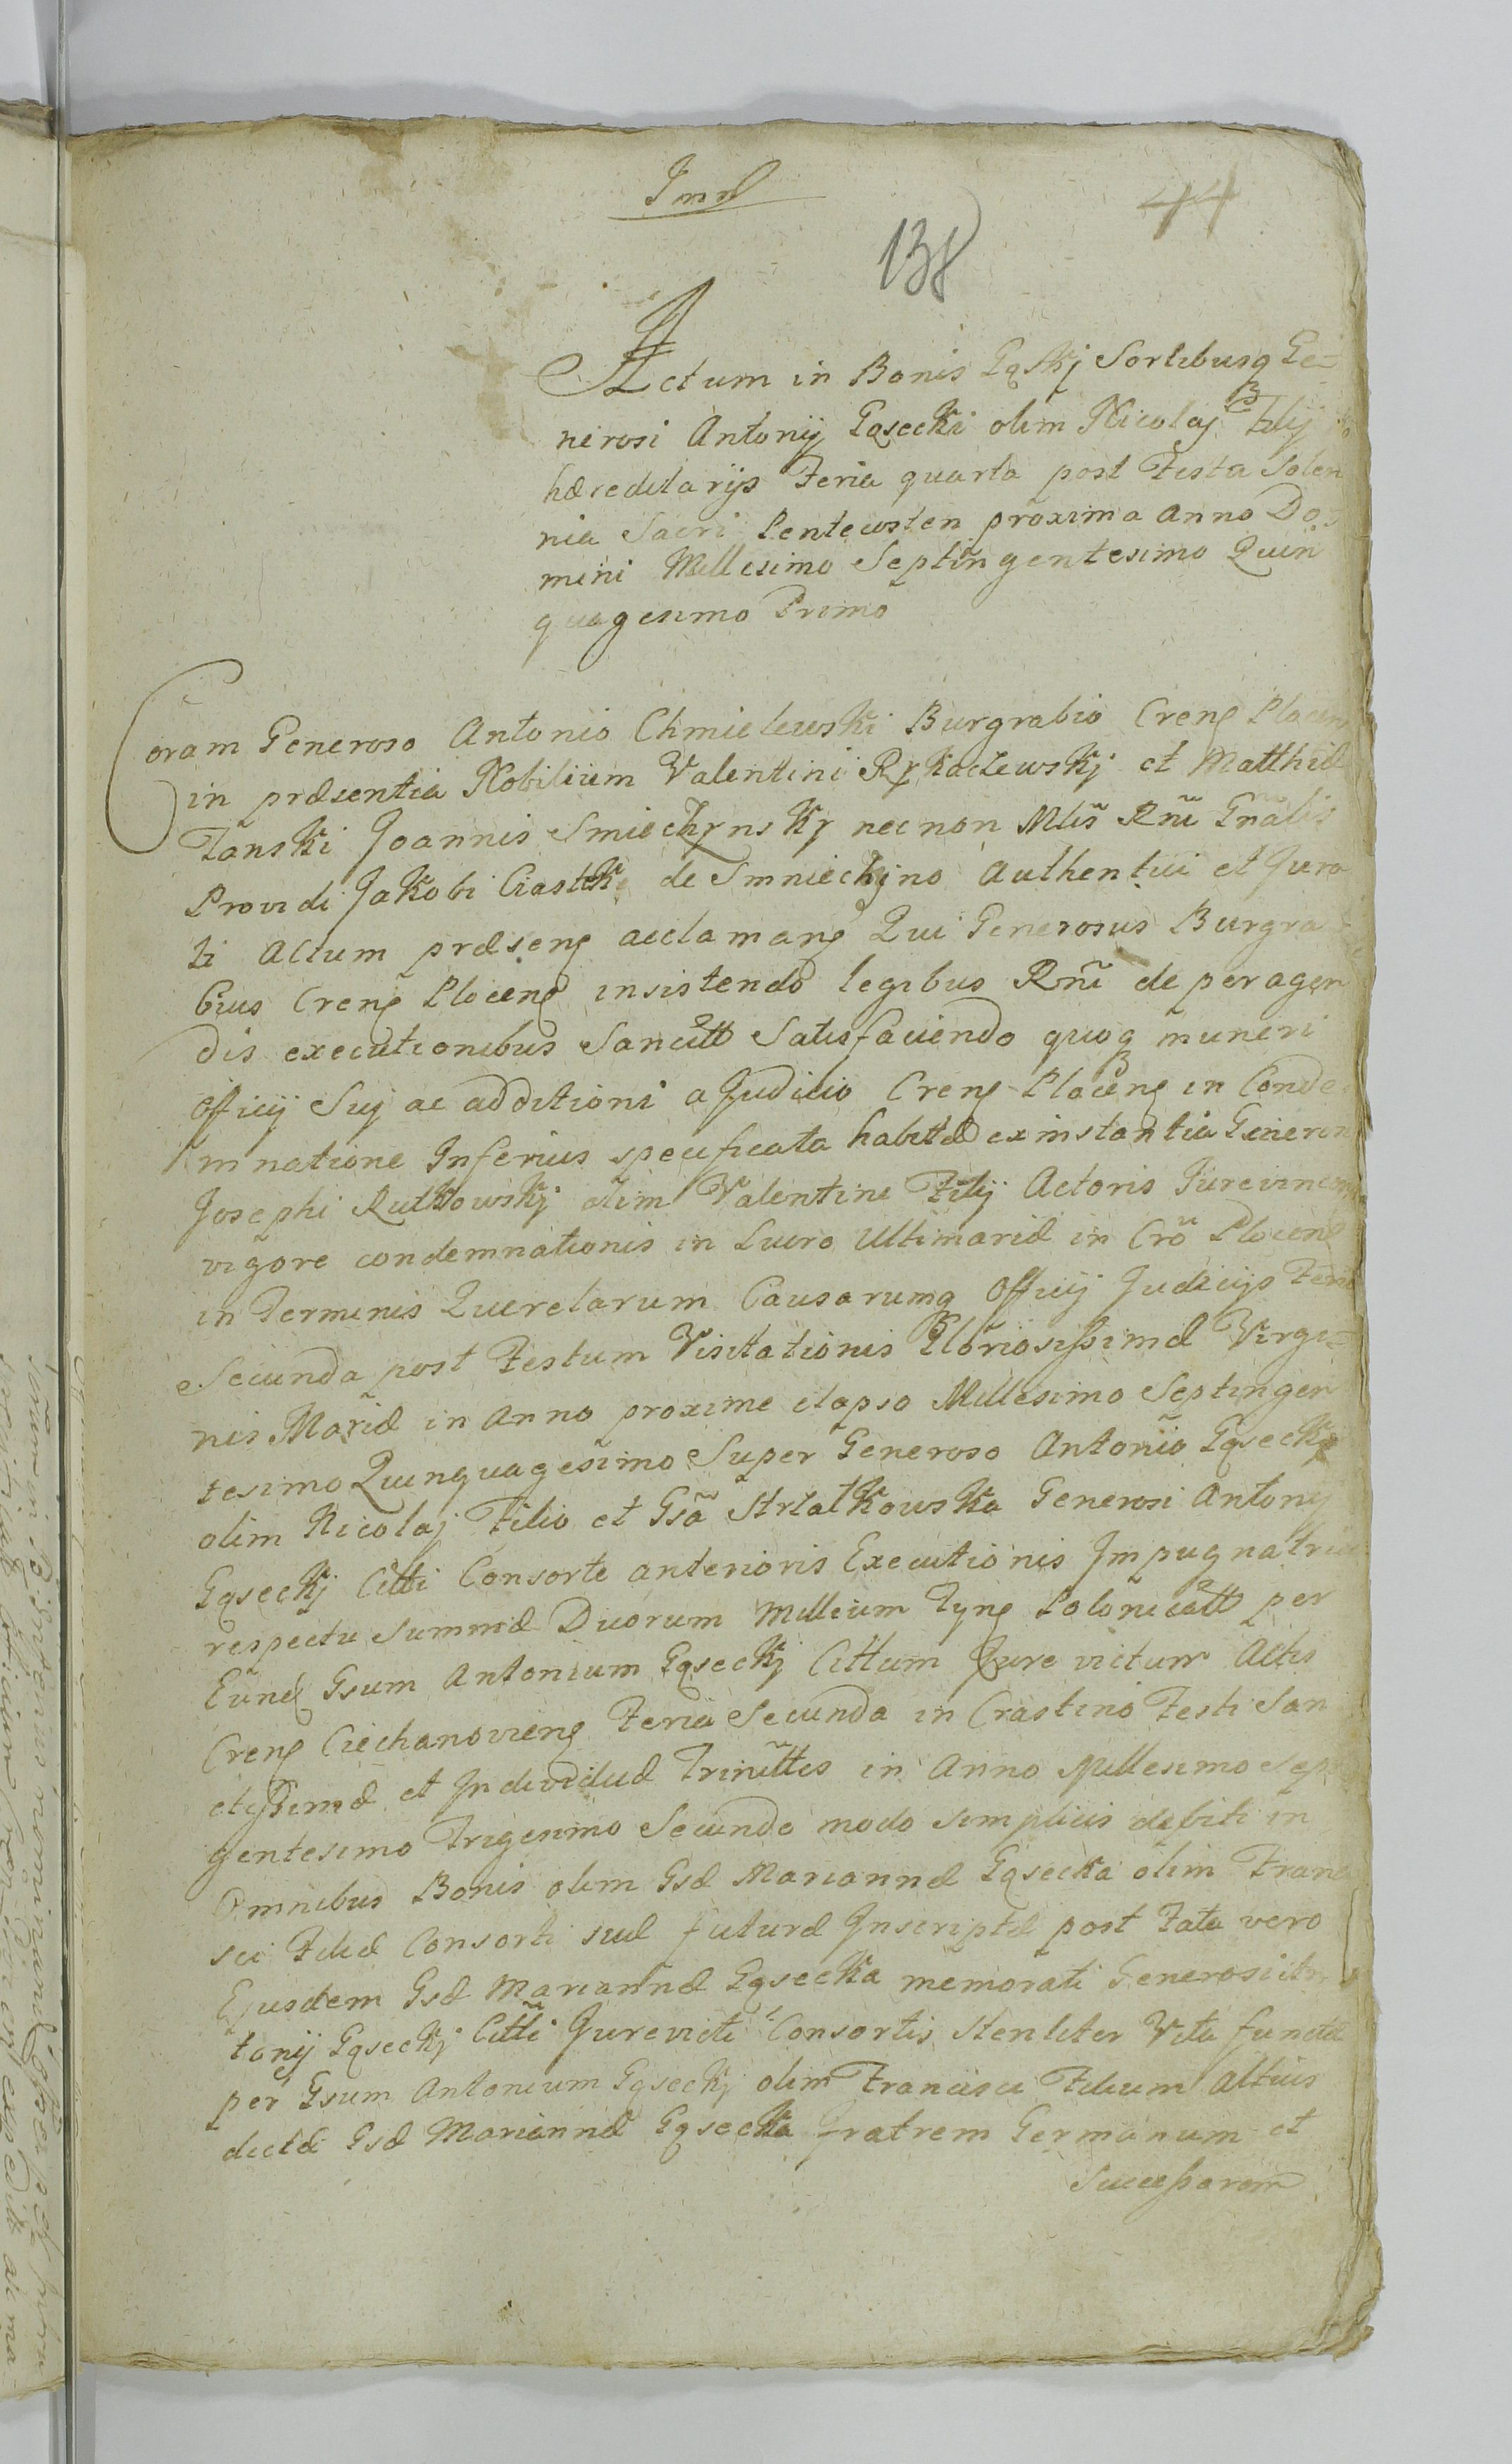 44
138
Actum in Bonis Gąskj Sortibusq Ge=
nerosi Antonij Gąsecki olim Nicolaj Filij
hæreditarijs Feria quarta post Festa Solen
nia Sacri Pentecosten proxima Anno Do=
mini Millesimo Septingentesimo Quin
quagesimo Primo
Coram Generoso Antonio Chmielewski Burgrabio Creng Plocen
in præsentia Nobilium Valentini Rykaczewskj et Matthiæ
Tanski Joannis Smiechynsky necnon Mlis Rni Gnalis
Providi Jakobi Ciastek de Smniechyno Authentici et Jura
ti Actum præseng acclamang Qui Generosus Burgra
bius Creng Ploceng insistendo legibus Rni de peragen
dis executionibus Sancitt Satisfaciendo quoq muneri
Officij Suj ac additioni a Judicio Creng Ploceng in Conde
mnatione Inferius specificata habitæ ex instantia Generosi
Josephi Rutkowskj olim Valentini Filij Actoris Jurevincen
vigore condemnationis in Lucro Ultimariæ in Cro Ploceng
in Terminis Querelarum Causarumq Officij Judicijs Feria
Secunda post Festum Visitationis Gloriosissimæ Virgi=
nis Mariæ in Anno proxime elapso Millesimo Septingen
tesimo Quinquagesimo Super Generoso Antonio Gąsecky
olim Nicolaj Filio et Gsa Strzałkowska Generosi Antonij
Gąseckj Citti Consorte anterioris Executionis Impugnatrice
respectu Summæ Duorum Millium Fyng Polonicatt per
Eund Gsum Antonium Gąseckj Cittum Jure victum Actis
Creng Ciechanovieng Feria Secunda in Crastino Festi San
ctissimæ et Individuæ Trinittis in Anno Millesimo Sep
gentesimo Trigesimo Secundo modo simplicis debiti in
Omnibus Bonis olim Gsæ Mariannæ Gąsecka olim Franc
sci Filiæ Consorti suæ futuræ Inscriptæ post Fata vero
Ejusdem Gsæ Mariannæ Gąsecka memorati Generosi An
tonij Gąseckj Citti Jurevicti Consortis Sterliter Vita functæ
per Gsum Antonium Gąseckj olim Francisci Filium altius
dictæ Gsæ Mariannæ Gąsecka Fratrem Germanum et
Successorem